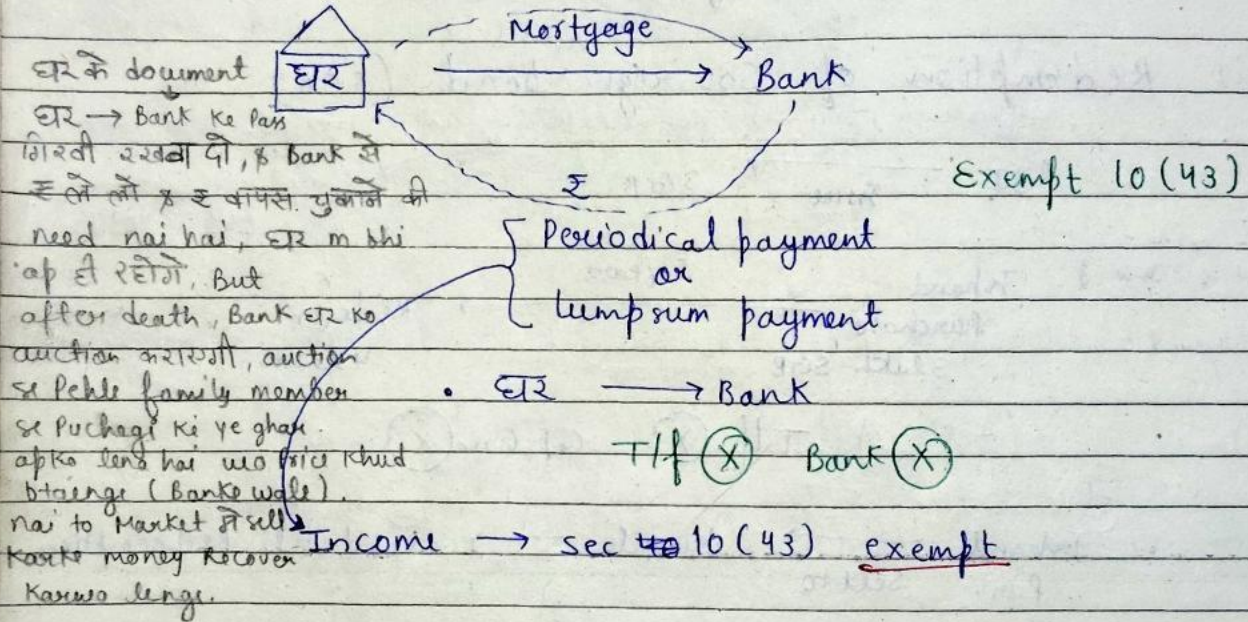 Mortgage
घर
Bank
घर के document
घर → Bank Ke Pass
गिरवी रखवा दो, & Bank से
₹ ले लो & ₹ वापस चुकाने की
need nai hai, घर m bhi
ap ही रहोगे, But
after death, Bank घर Ko
auction कराएगी, auction
se Pehle family member
se Puchegi Ki ye ghar
apko lena hai wo price Khud
btaenge (Banke wale).
nai to Market में sell
Karke money Recover
Karwa lenge.
₹
Exempt 10 (43)
Periodical payment
or
lumpsum payment
• घर → Bank
T/f X Bank X
Income → sec 10 (43) exempt